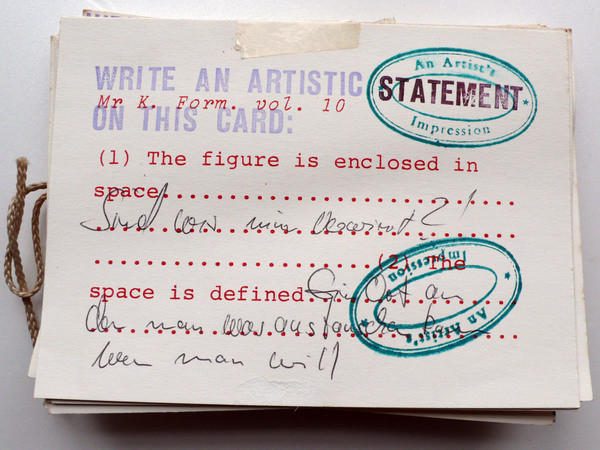 WRITE AN ARTISTIC
Mr K. Form. vol. 10
ON THIS CARD:
An Artist's
STATEMENT
Impression
(1) The figure is enclosed in
space..............................
Sind wir nun verwirrt?!
....................(2) The
An Artist's
Impression
space is defined Ein Ort an
dem man was austauschen kann
wen man will